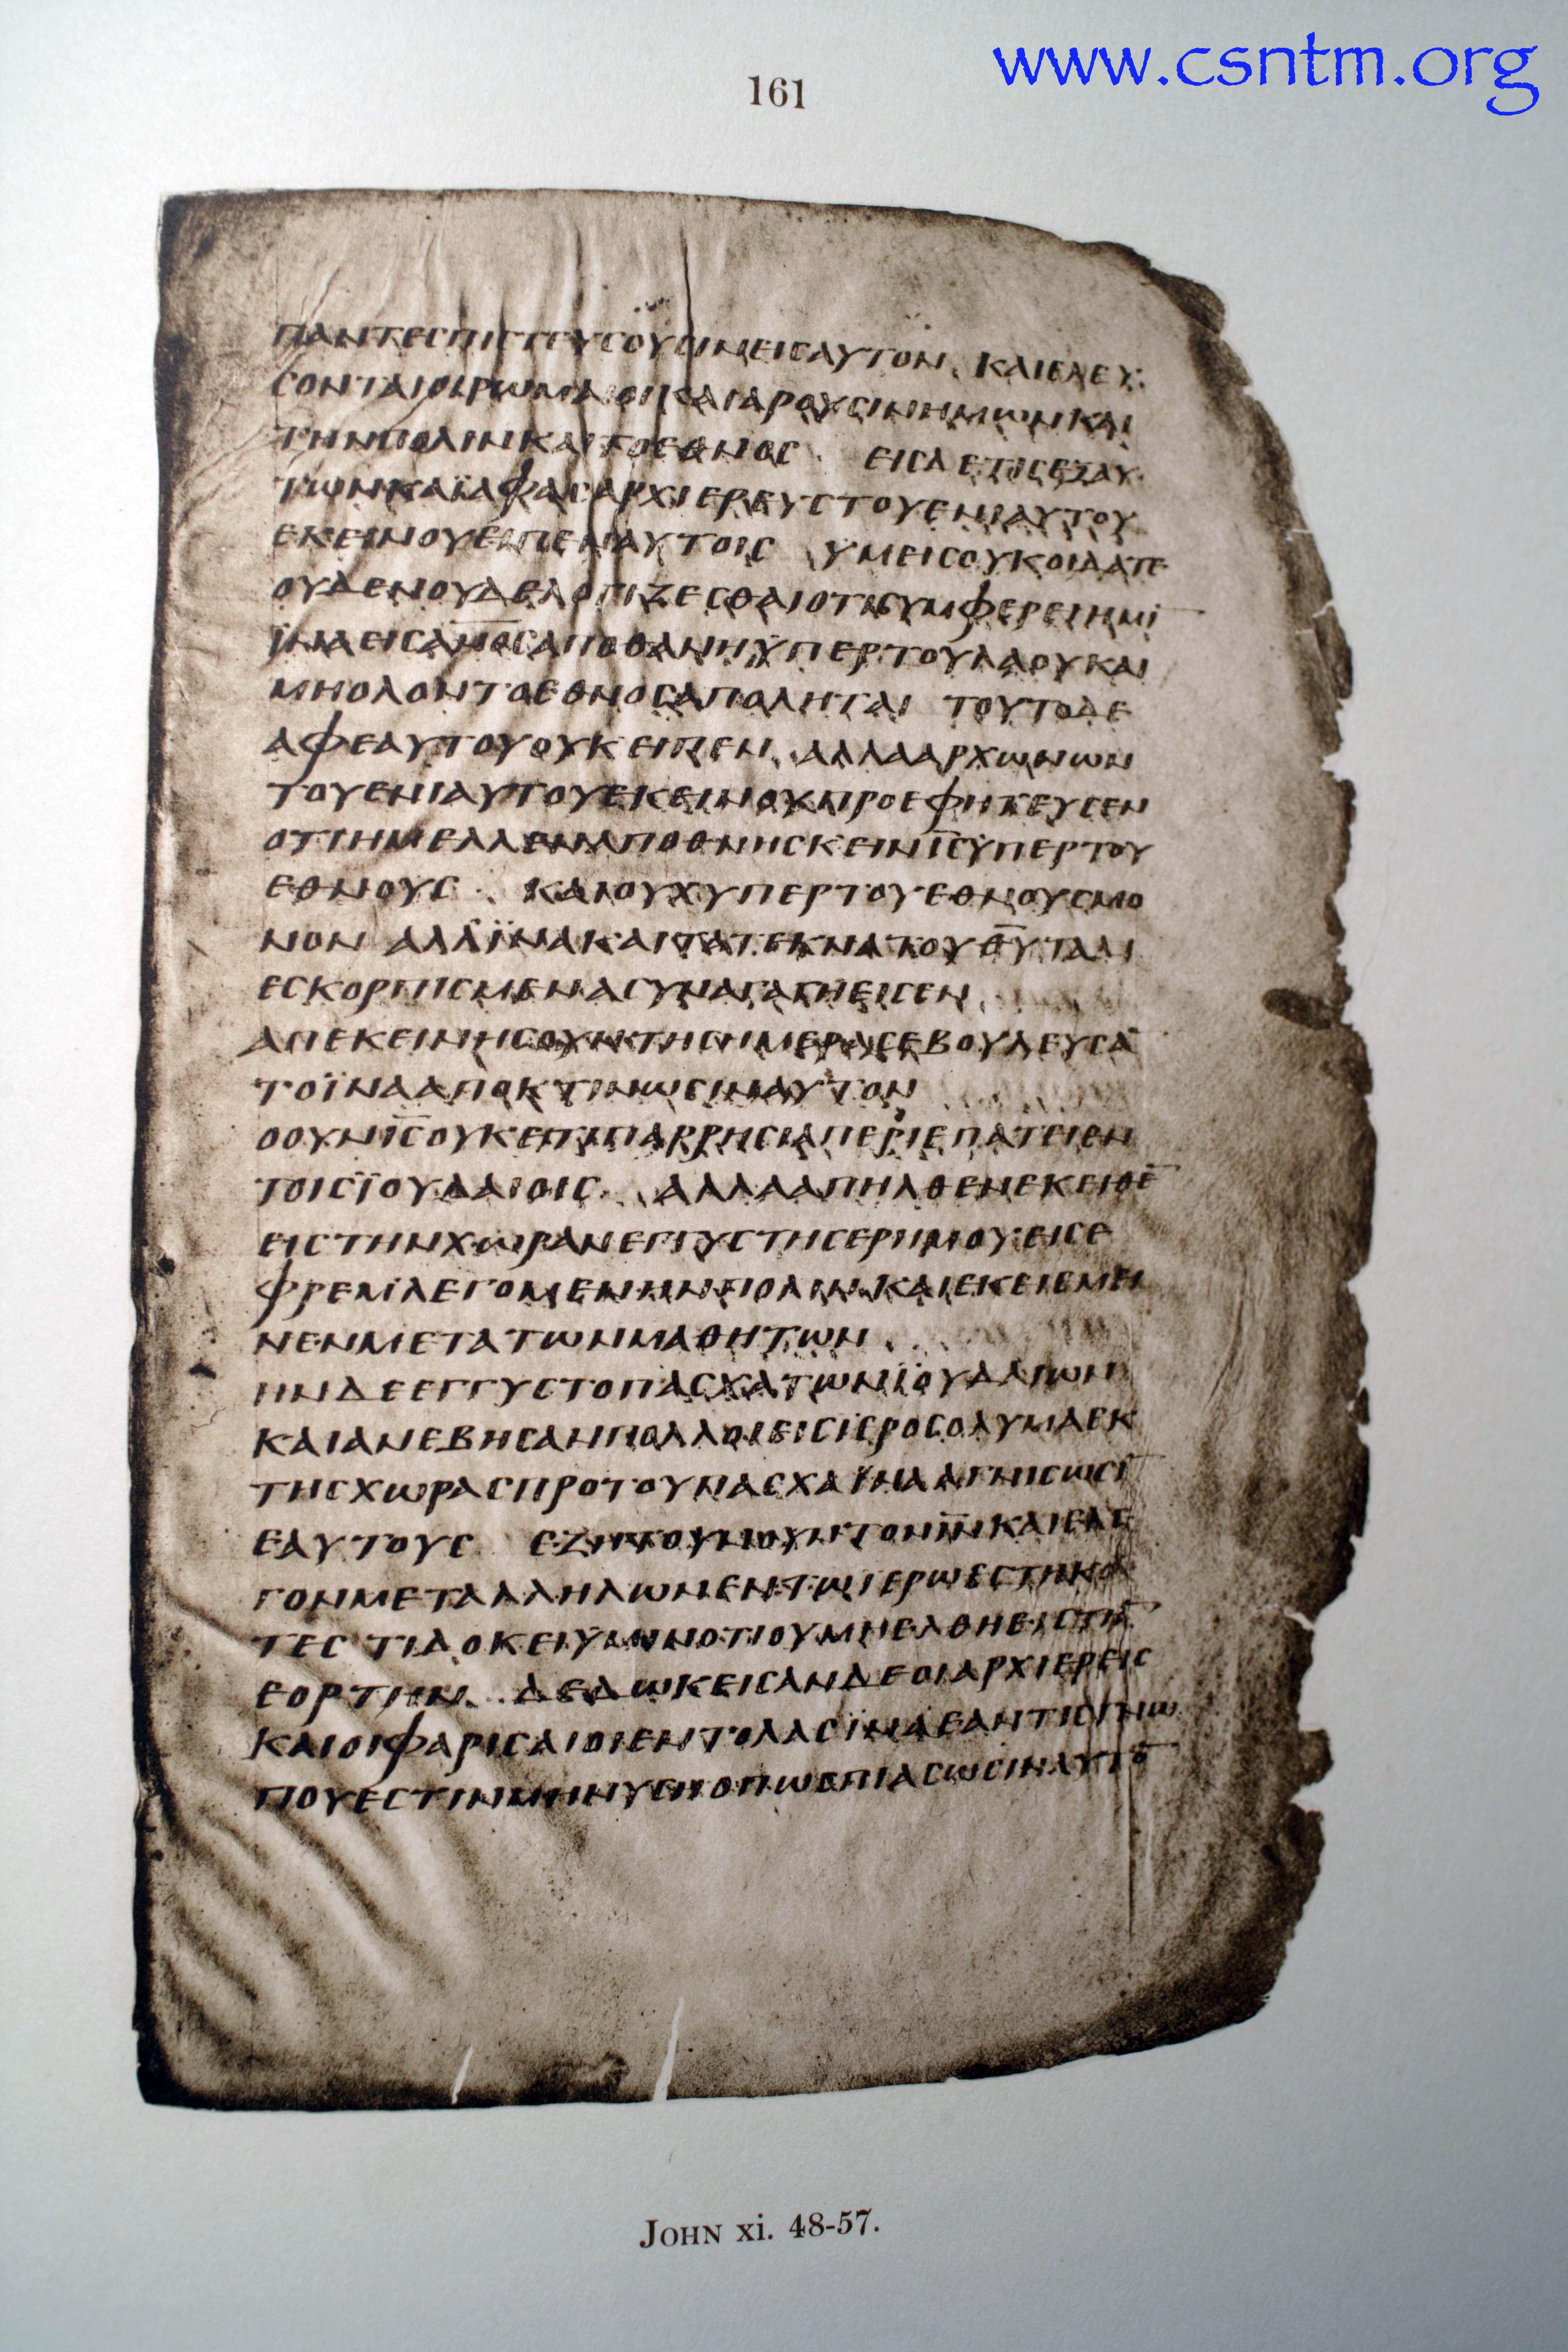 www.csntm.org
161
ΠΑΝΤΕСΠΙСΤΕΥСΟΥСΙΝΕΙСΑΥΤΟΝ ΚΑΙΕΛΕΥ
СΟΝΤΑΙΟΙΡΩΜΑΙΟΙΚΑΙΑΡΟΥСΙΝΗΜΩΝΚΑΙ
ΤΗΝΠΟΛΙΝΚΑΙΤΟΕΘΝΟС ΕΙСΔΕΤΙСΕΞΑΥ
ΤΩΝΚΑΪΑΦΑСΑΡΧΙΕΡΕΥСΤΟΥΕΝΙΑΥΤΟΥ
ΕΚΕΙΝΟΥΕΙΠΕΝΑΥΤΟΙС ΥΜΕΙСΟΥΚΟΙΔΑΤΕ
ΟΥΔΕΝΟΥΔΕΛΟΓΙΖΕСΘΑΙΟΤΙСΥΜΦΕΡΕΙΗΜΙ̅
ΪΝΑΕΙСΑ̅Ν̅Ο̅СΑΠΟΘΑΝΗΫΠΕΡΤΟΥΛΑΟΥΚΑΙ
ΜΗΟΛΟΝΤΟΕΘΝΟСΑΠΟΛΗΤΑΙ ΤΟΥΤΟΔΕ
ΑΦΕΑΥΤΟΥΟΥΚΕΙΠΕΝ ΑΛΛΑΑΡΧΩΝΩΝ
ΤΟΥΕΝΙΑΥΤΟΥΕΚΕΙΝΟΥΠΡΟΕΦΗΤΕΥСΕΝ
ΟΤΙΗΜΕΛΛΕΝΑΠΟΘΝΗСΚΕΙΝΙ̅С̅ΥΠΕΡΤΟΥ
ΕΘΝΟΥС ΚΑΙΟΥΧΥΠΕΡΤΟΥΕΘΝΟΥСΜΟ
ΝΟΝ ΑΛΛΪΝΑΚΑΙΤΑΤΕΚΝΑΤΟΥΘ̅Υ̅ΤΑ
ΕСΚΟΡΠΙСΜΕΝΑСΥΝΑΓΑΓΗΕΙСΕΝ
ΑΠΕΚΕΙΝΗСΟΥΝΤΗСΗΜΕΡΑСΕΒΟΥΛΕΥСΑ̅
ΤΟΪΝΑΑΠΟΚΤΙΝΩСΙΝΑΥΤΟΝ
ΟΟΥΝΙ̅С̅ΟΥΚΕΤΙΠΑΡΡΗСΙΑΠΕΡΙΕΠΑΤΕΙΕΝ
ΤΟΙСΪΟΥΔΑΙΟΙС ΑΛΛΑΑΠΗΛΘΕΝΕΚΕΙΘΕ̅
ΕΙСΤΗΝΧΩΡΑΝΕΓΓΥСΤΗСΕΡΗΜΟΥΕΙСΕ
ΦΡΕΜΛΕΓΟΜΕΝΗΝΠΟΛΙΝΚΑΙΕΚΕΙΕΜΕΙ
ΝΕΝΜΕΤΑΤΩΝΜΑΘΗΤΩΝ
ΗΝΔΕΕΓΓΥСΤΟΠΑСΧΑΤΩΝΪΟΥΔΑΙΩΝ
ΚΑΙΑΝΕΒΗСΑΝΠΟΛΛΟΙΕΙСΙΕΡΟСΟΛΥΜΑΕΚ
ΤΗСΧΩΡΑСΠΡΟΤΟΥΠΑСΧΑΪΝΑΑΓΝΙСΩСΙ̅
ΕΑΥΤΟΥС ΕΖΗΤΟΥΝΟΥΝΤΟΝΙ̅Ν̅ΚΑΙΕΛΕ
ΓΟΝΜΕΤΑΛΛΗΛΩΝΕΝΤΩΙΕΡΩΕСΤΗΚΟ
ΤΕС ΤΙΔΟΚΕΙΫΜΙΝΟΤΙΟΥΜΗΕΛΘΗΕΙСΤΗ̅
ΕΟΡΤΗΝ ΔΕΔΩΚΕΙСΑΝΔΕΟΙΑΡΧΙΕΡΕΙС
ΚΑΙΟΙΦΑΡΙСΑΙΟΙΕΝΤΟΛΑСΪΝΑΕΑΝΤΙСΓΝΩ
ΠΟΥΕСΤΙΝΜΗΝΥСΗΟΠΩСΠΙΑСΩСΙΝΑΥΤΟ̅
JOHN xi. 48-57.